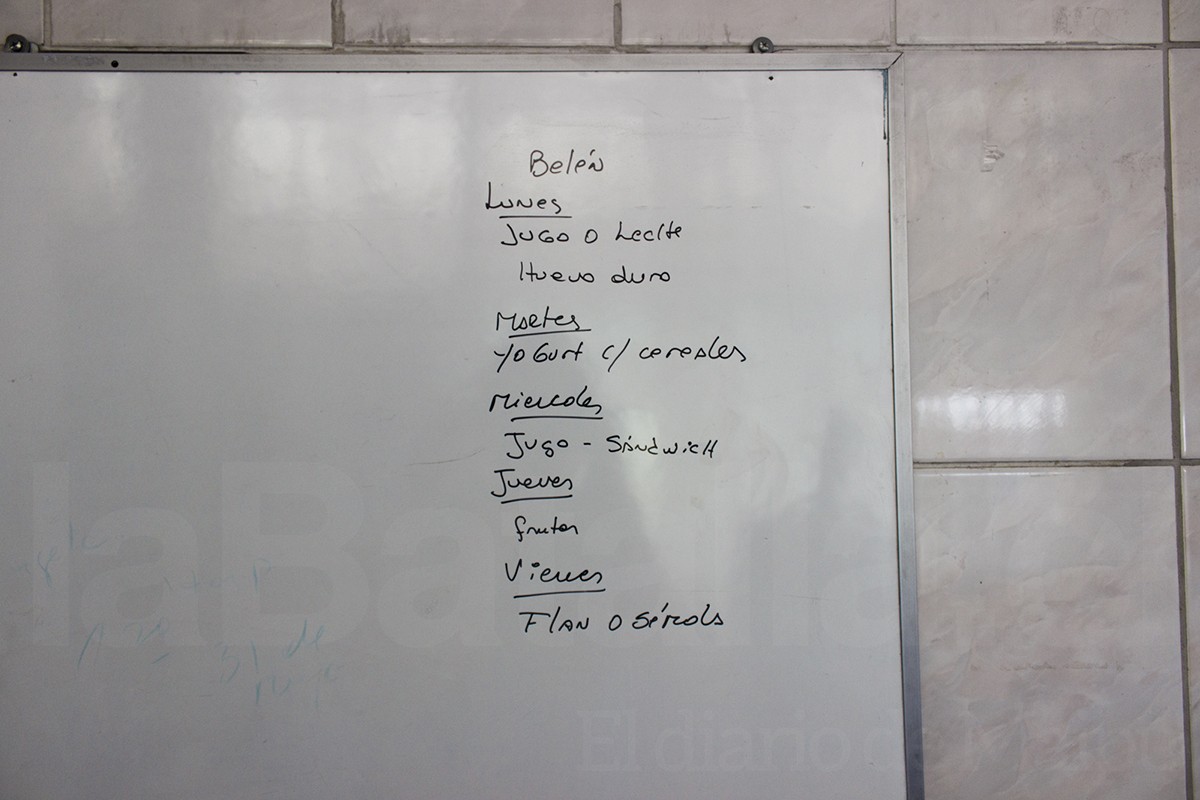 Belén
Lunes
Jugo o Leche
Huevo duro
Martes
Yogurt c/ cereales
Miercoles
Jugo - Sándwich
Jueves
frutas
Viernes
Flan o Sémola
laBatalla
El diario de Maipú